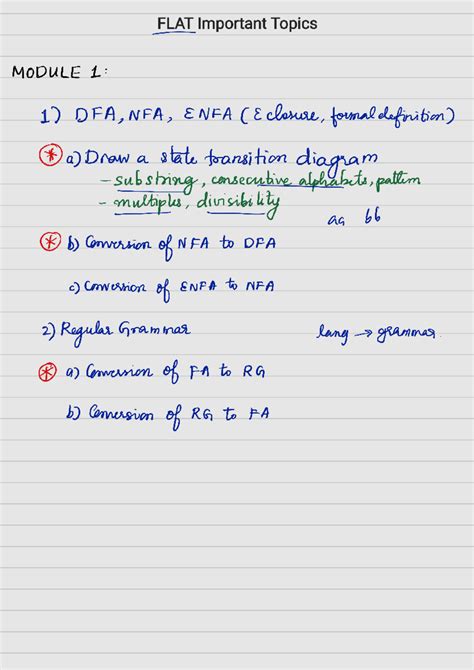 FLAT Important Topics
MODULE 1:
1) DFA, NFA, ƐNFA (Ɛ closure, formal definition)
* a) Draw a state transition diagram
- substring, consecutive alphabets, pattern
- multiples, divisibility
aa bb
* b) Conversion of NFA to DFA
c) Conversion of ƐNFA to NFA
2) Regular Grammar lang → grammar
* a) Conversion of FA to RG
b) Conversion of RG to FA